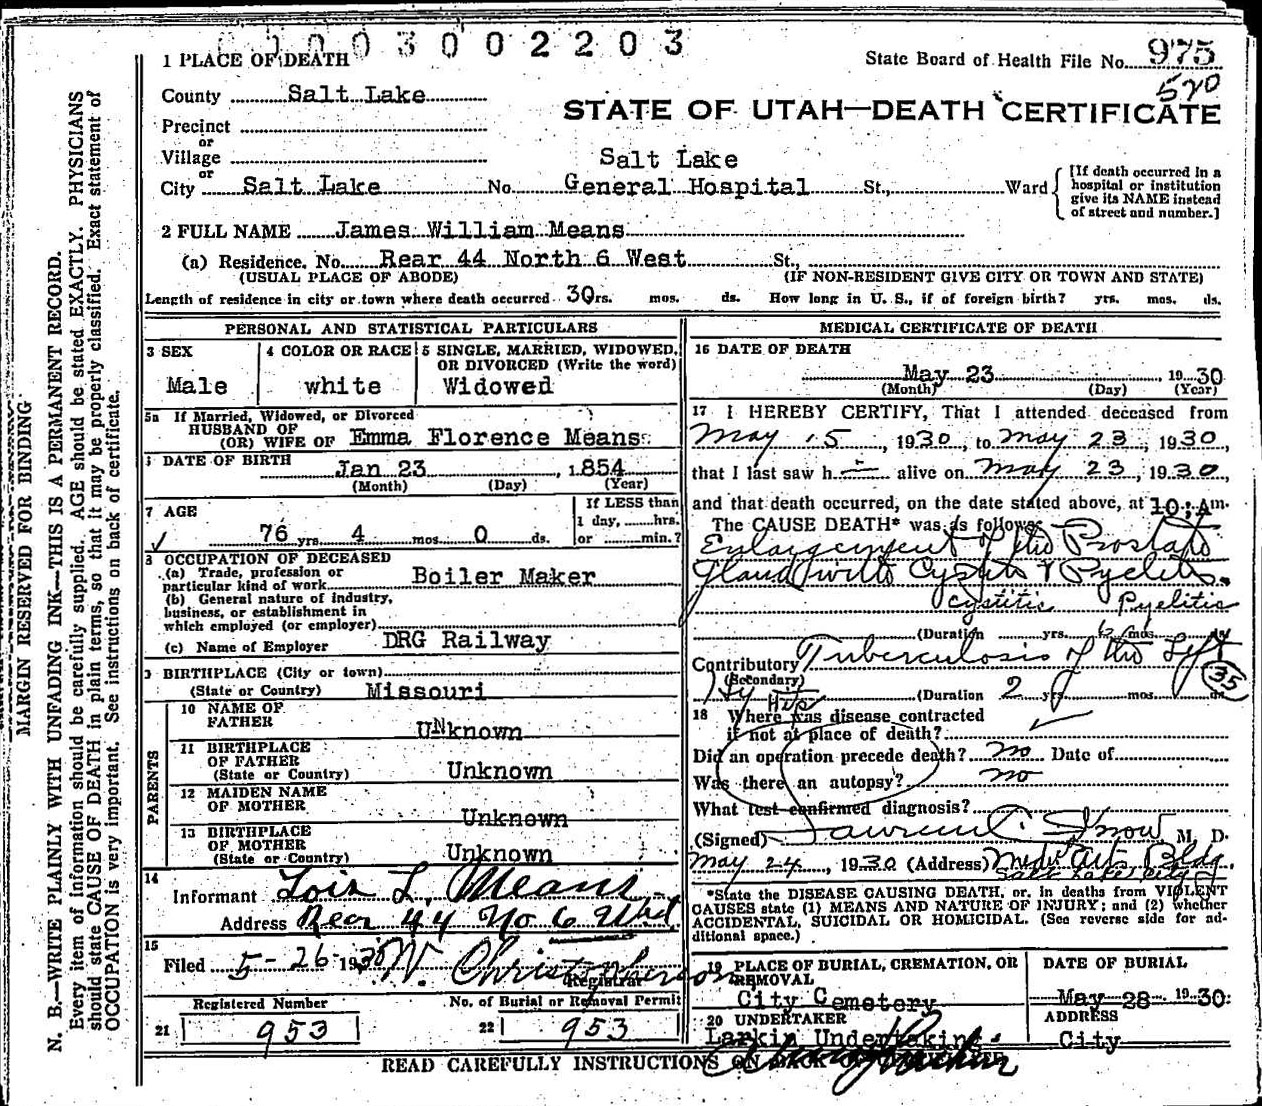 0003002203
1 PLACE OF DEATH
State Board of Health File No. 975
520
County Salt Lake
STATE OF UTAH—DEATH CERTIFICATE
Precinct
or
Village
Salt Lake
or
City Salt Lake No. General Hospital St., Ward
[If death occurred in a hospital or institution give its NAME instead of street and number.]
2 FULL NAME James William Means
(a) Residence. No. Rear 44 North 6 West St.,
(USUAL PLACE OF ABODE) (IF NON-RESIDENT GIVE CITY OR TOWN AND STATE)
Length of residence in city or town where death occurred 30rs. mos. ds. How long in U. S., if of foreign birth? yrs. mos. ds.
PERSONAL AND STATISTICAL PARTICULARS
3 SEX
Male
4 COLOR OR RACE
white
5 SINGLE, MARRIED, WIDOWED,
OR DIVORCED (Write the word)
Widowed
5a If Married, Widowed, or Divorced
HUSBAND OF
(OR) WIFE OF Emma Florence Means
DATE OF BIRTH
Jan 23, 1854
(Month) (Day) (Year)
7 AGE
76 yrs. 4 mos. 0 ds.
If LESS than
1 day, hrs.
or min.?
8 OCCUPATION OF DECEASED
(a) Trade, profession or
particular kind of work Boiler Maker
(b) General nature of industry,
business, or establishment in
which employed (or employer)
(c) Name of Employer DRG Railway
9 BIRTHPLACE (City or town)
(State or Country) Missouri
PARENTS
10 NAME OF
FATHER UNknown
11 BIRTHPLACE
OF FATHER
(State or Country) Unknown
12 MAIDEN NAME
OF MOTHER Unknown
13 BIRTHPLACE
OF MOTHER
(State or Country) Unknown
14
Informant Lois L. Means
Address Rear 44 No 6 West
15
Filed 5-26 1930 W. Christopherson
Registrar
Registered Number
21 953
No. of Burial or Removal Permit
22 953
MEDICAL CERTIFICATE OF DEATH
16 DATE OF DEATH
May 23 1930
(Month) (Day) (Year)
17 I HEREBY CERTIFY, That I attended deceased from
May 15, 1930, to May 23, 1930,
that I last saw h alive on May 23, 1930,
and that death occurred, on the date stated above, at 10:Am.
The CAUSE DEATH* was as follows
Enlargement of the Prostate
Gland with Cystitis & Pyelitis.
Cystitis Pyelitis
(Duration yrs. 6 mos. ds.
Contributory Tuberculosis of the Left
(Secondary)
Hip
35
(Duration 2 yrs. mos. ds.
18 Where was disease contracted
if not at place of death?
Did an operation precede death? no Date of
Was there an autopsy? no
What test confirmed diagnosis?
(Signed) Snow M. D.
May 24, 1930 (Address) Medic Arts Bldg.
Salt Lake City
*State the DISEASE CAUSING DEATH, or, in deaths from VIOLENT
CAUSES state (1) MEANS AND NATURE OF INJURY; and (2) whether
ACCIDENTAL, SUICIDAL OR HOMICIDAL. (See reverse side for ad-
ditional space.)
19 PLACE OF BURIAL, CREMATION, OR
REMOVAL
City Cemetery
DATE OF BURIAL
May 28 1930
20 UNDERTAKER
Larkin Undertaking
ADDRESS
City
READ CAREFULLY INSTRUCTIONS ON BACK OF
MARGIN RESERVED FOR BINDING
N. B.—WRITE PLAINLY WITH UNFADING INK—THIS IS A PERMANENT RECORD.
Every item of information should be carefully supplied. AGE should be stated EXACTLY. PHYSICIANS
should state CAUSE OF DEATH in plain terms, so that it may be properly classified. Exact statement of
OCCUPATION is very important. See instructions on back of certificate.